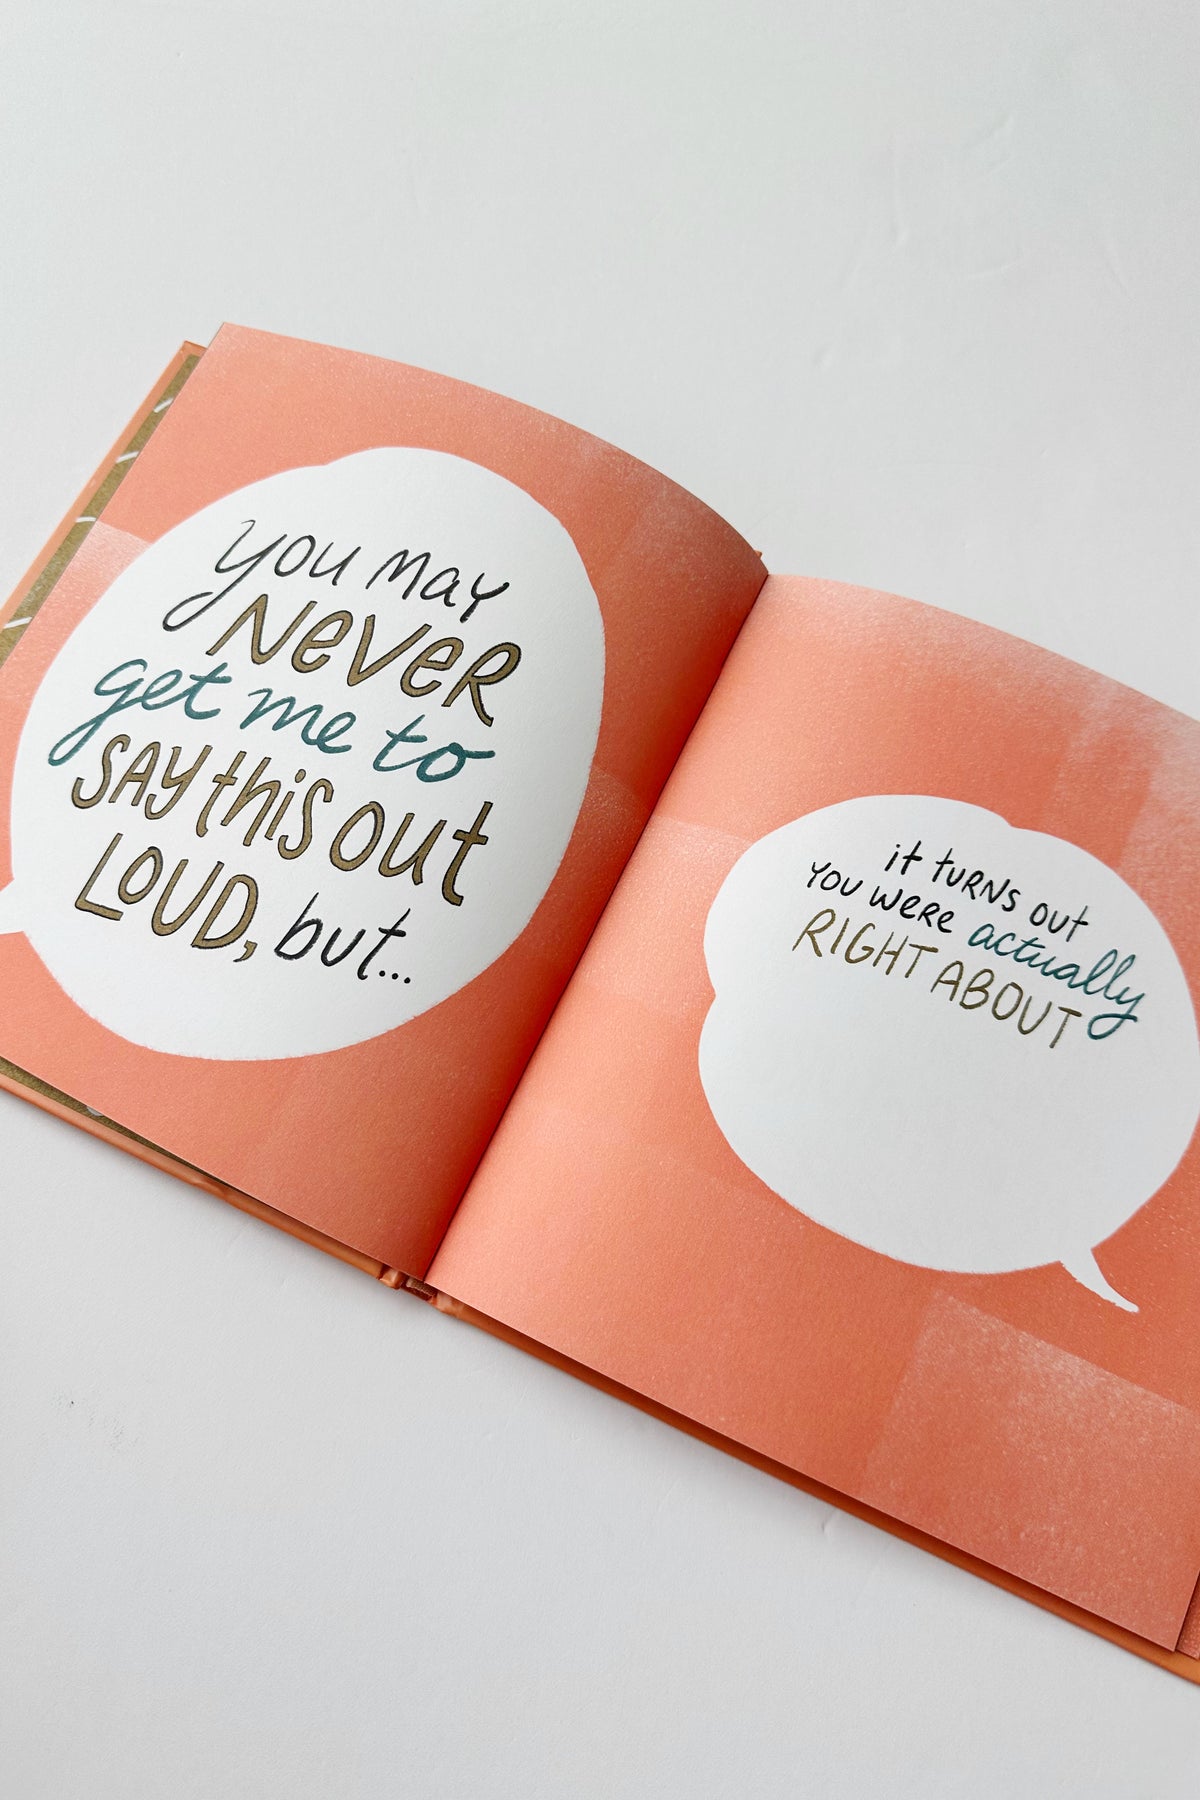 you may
NEVER
get me to
SAY this out
LOUD, but...
it turns out
you were actually
RIGHT ABOUT